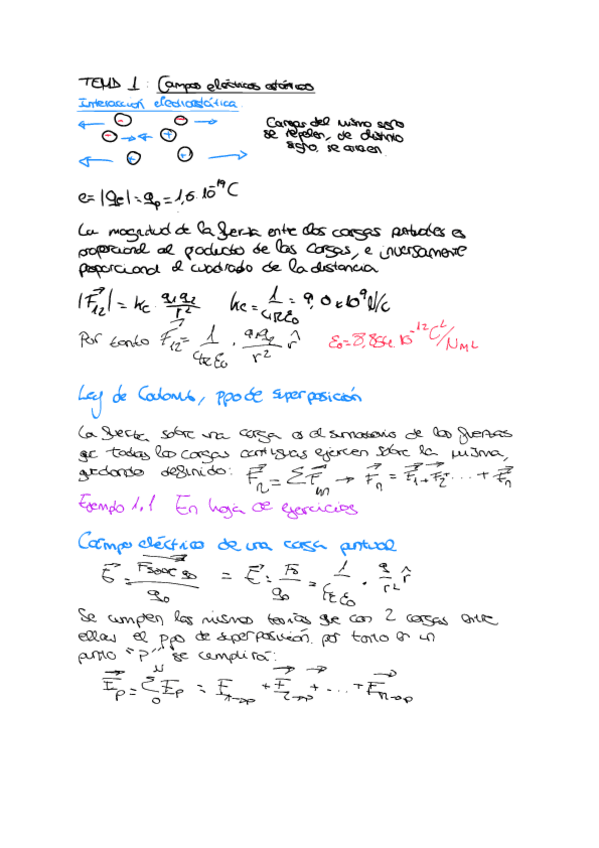 TEMA 1: Campos eléctricos estáticos
Interacción electrostática
Cargas del mismo signo
se repelen, de distinto
signo, se atraen
e = |qe| = qp = 1,6·10⁻¹⁹ C
La magnitud de la fuerza entre dos cargas puntuales es
proporcional al producto de las cargas, e inversamente
proporcional al cuadrado de la distancia
|F₁₂| = kc · q₁q₂/r² kc = 1/4πε₀ = 9,0×10⁹ N/C
Por tanto F₁₂ = 1/4πε₀ · q₁q₂/r² r̂ ε₀ = 8,854·10⁻¹² C²/Nm²
Ley de Coulomb, ppo de superposición
La fuerza sobre una carga es el sumatorio de las fuerzas
que todas las cargas contiguas ejercen sobre la misma,
quedando definido: Fn = ΣF → Fn = F₁ + F₂ + ... + Fn
Ejemplo 1.1 En hoja de ejercicios
Campo eléctrico de una carga puntual
E = Fsobre q₀/q₀ = E = F₀/q₀ = 1/4πε₀ · q/r² r̂
Se cumplen las mismas teorías que con 2 cargas entre
ellas el ppo de superposición. por tanto en un
punto "P" se cumplirá:
Ep = Σ Ep = E₁→p + E₂→p + ... + En→p